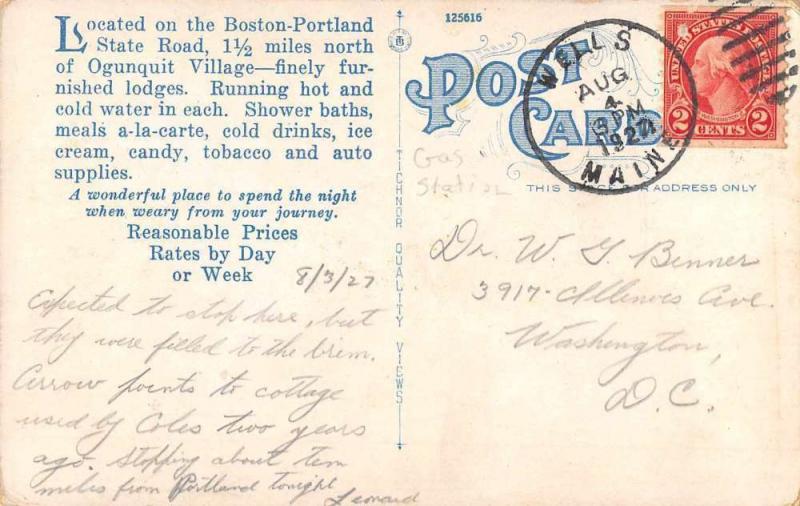 Located on the Boston-Portland
State Road, 1½ miles north
of Ogunquit Village—finely fur-
nished lodges. Running hot and
cold water in each. Shower baths,
meals a-la-carte, cold drinks, ice
cream, candy, tobacco and auto
supplies.
A wonderful place to spend the night
when weary from your journey.
Reasonable Prices
Rates by Day
or Week
8/3/27
Expected to stop here, but
they were filled to the brim.
Arrow points to cottage
used by Coles two years
ago. Stopping about ten
miles from Portland tonight
Leonard
TICHNOR QUALITY VIEWS
125616
POST
CARD
WELLS
AUG
4
PM
1927
MAINE
UNITED STATES POSTAGE
WASHINGTON
2 CENTS 2
Gas
Station
THIS SPACE FOR ADDRESS ONLY
Dr. W. G. Benner
3917 - Illinois Ave.
Washington,
D.C.